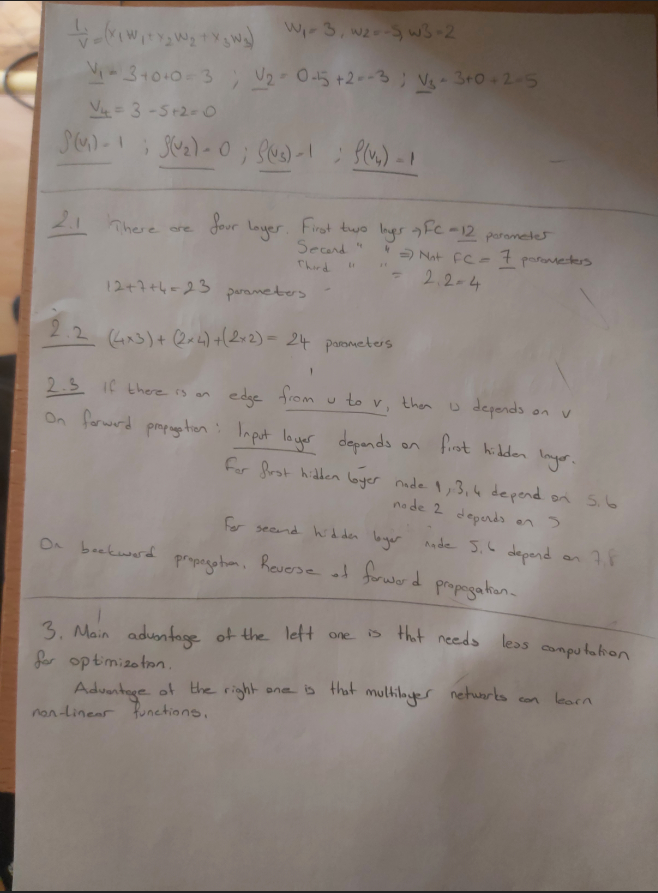 1.
V = (x₁w₁ + x₂w₂ + x₃w₃) W₁ = 3, w₂ = -5, w3 = 2
V₁ = 3+0+0 = 3 ; V₂ = 0-5+2 = -3 ; V₃ = 3+0+2 = 5
V₄ = 3-5+2 = 0
ρ(v₁) = 1 ; ρ(v₂) = 0 ; ρ(v₃) = 1 ; ρ(v₄) = 1
2.1 There are four layer. First two layer → FC = 12 parameter
Second " " ⇒ Not FC = 7 parameters
Third " " = 2.2 = 4
12+7+4 = 23 parameters
2.2 (4x3) + (2x4) + (2x2) = 24 parameters
2.3 If there is an edge from u to v, then u depends on v
On forward propagation : Input layer depends on first hidden layer.
For first hidden layer node 1, 3, 4 depend on 5, 6
node 2 depends on 5
For second hidden layer node 5, 6 depend on 7, 8
On backward propagation. Reverse of forward propagation.
3. Main advantage of the left one is that needs less computation
for optimization.
Advantage of the right one is that multilayer networks can learn
non-linear functions.